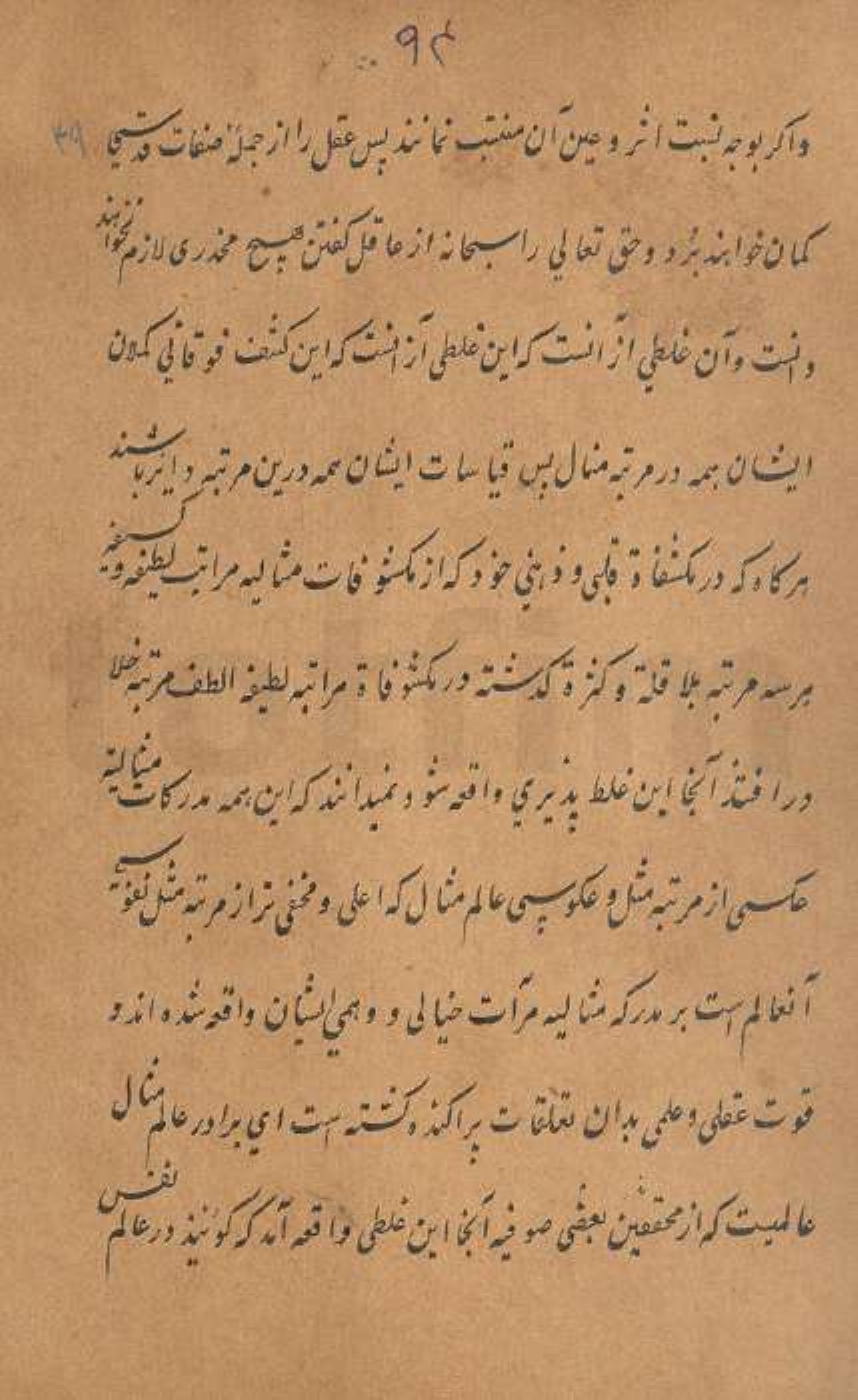 ۹۴
واکر بوجه نسبت اثر و عین آن منتسب نمانند پس عقل را از جملهٔ صفات قدسی
کمان خواهند برد وحق تعالی را سبحانه از عاقل کفتن هیچ مخدری لازم نخواهند
دانست وآن غلطی از آنست که این غلطی از آنست که این کشف فوقانی کملان
ایشان همه در مرتبه مثال پس قیاسات ایشان همه درین مرتبه دایر باشند
هرکاه که در مکشفاة قلبی و ذهنی خود که از مکشوفات مثالیه مراتب لطیفه و کسیفه
هرسه مرتبه بلا قلة و کثرة کذشته در مکشوفاة مراتبه لطیفه الطف مرتبه خلا
در افتد آنجا این غلط پذیری واقعه شود نمیدانند که این همه مدرکات مثالیه
عکسی از مرتبه مثل و عکوسی عالم مثال که اعلی و مخفی تر از مرتبه مثل
آنعالم است بر مدرکه مثالیه مرآت خیالی و وهمی ایشان واقعه شده اند و
قوت عقلی وعلمی بدان تعلقات پراکنده کشته است ای برادر عالم مثال
عالمیست که از محققین بعضی صوفیه آنجا این غلطی واقعه آمد که کویند در عالم نفس